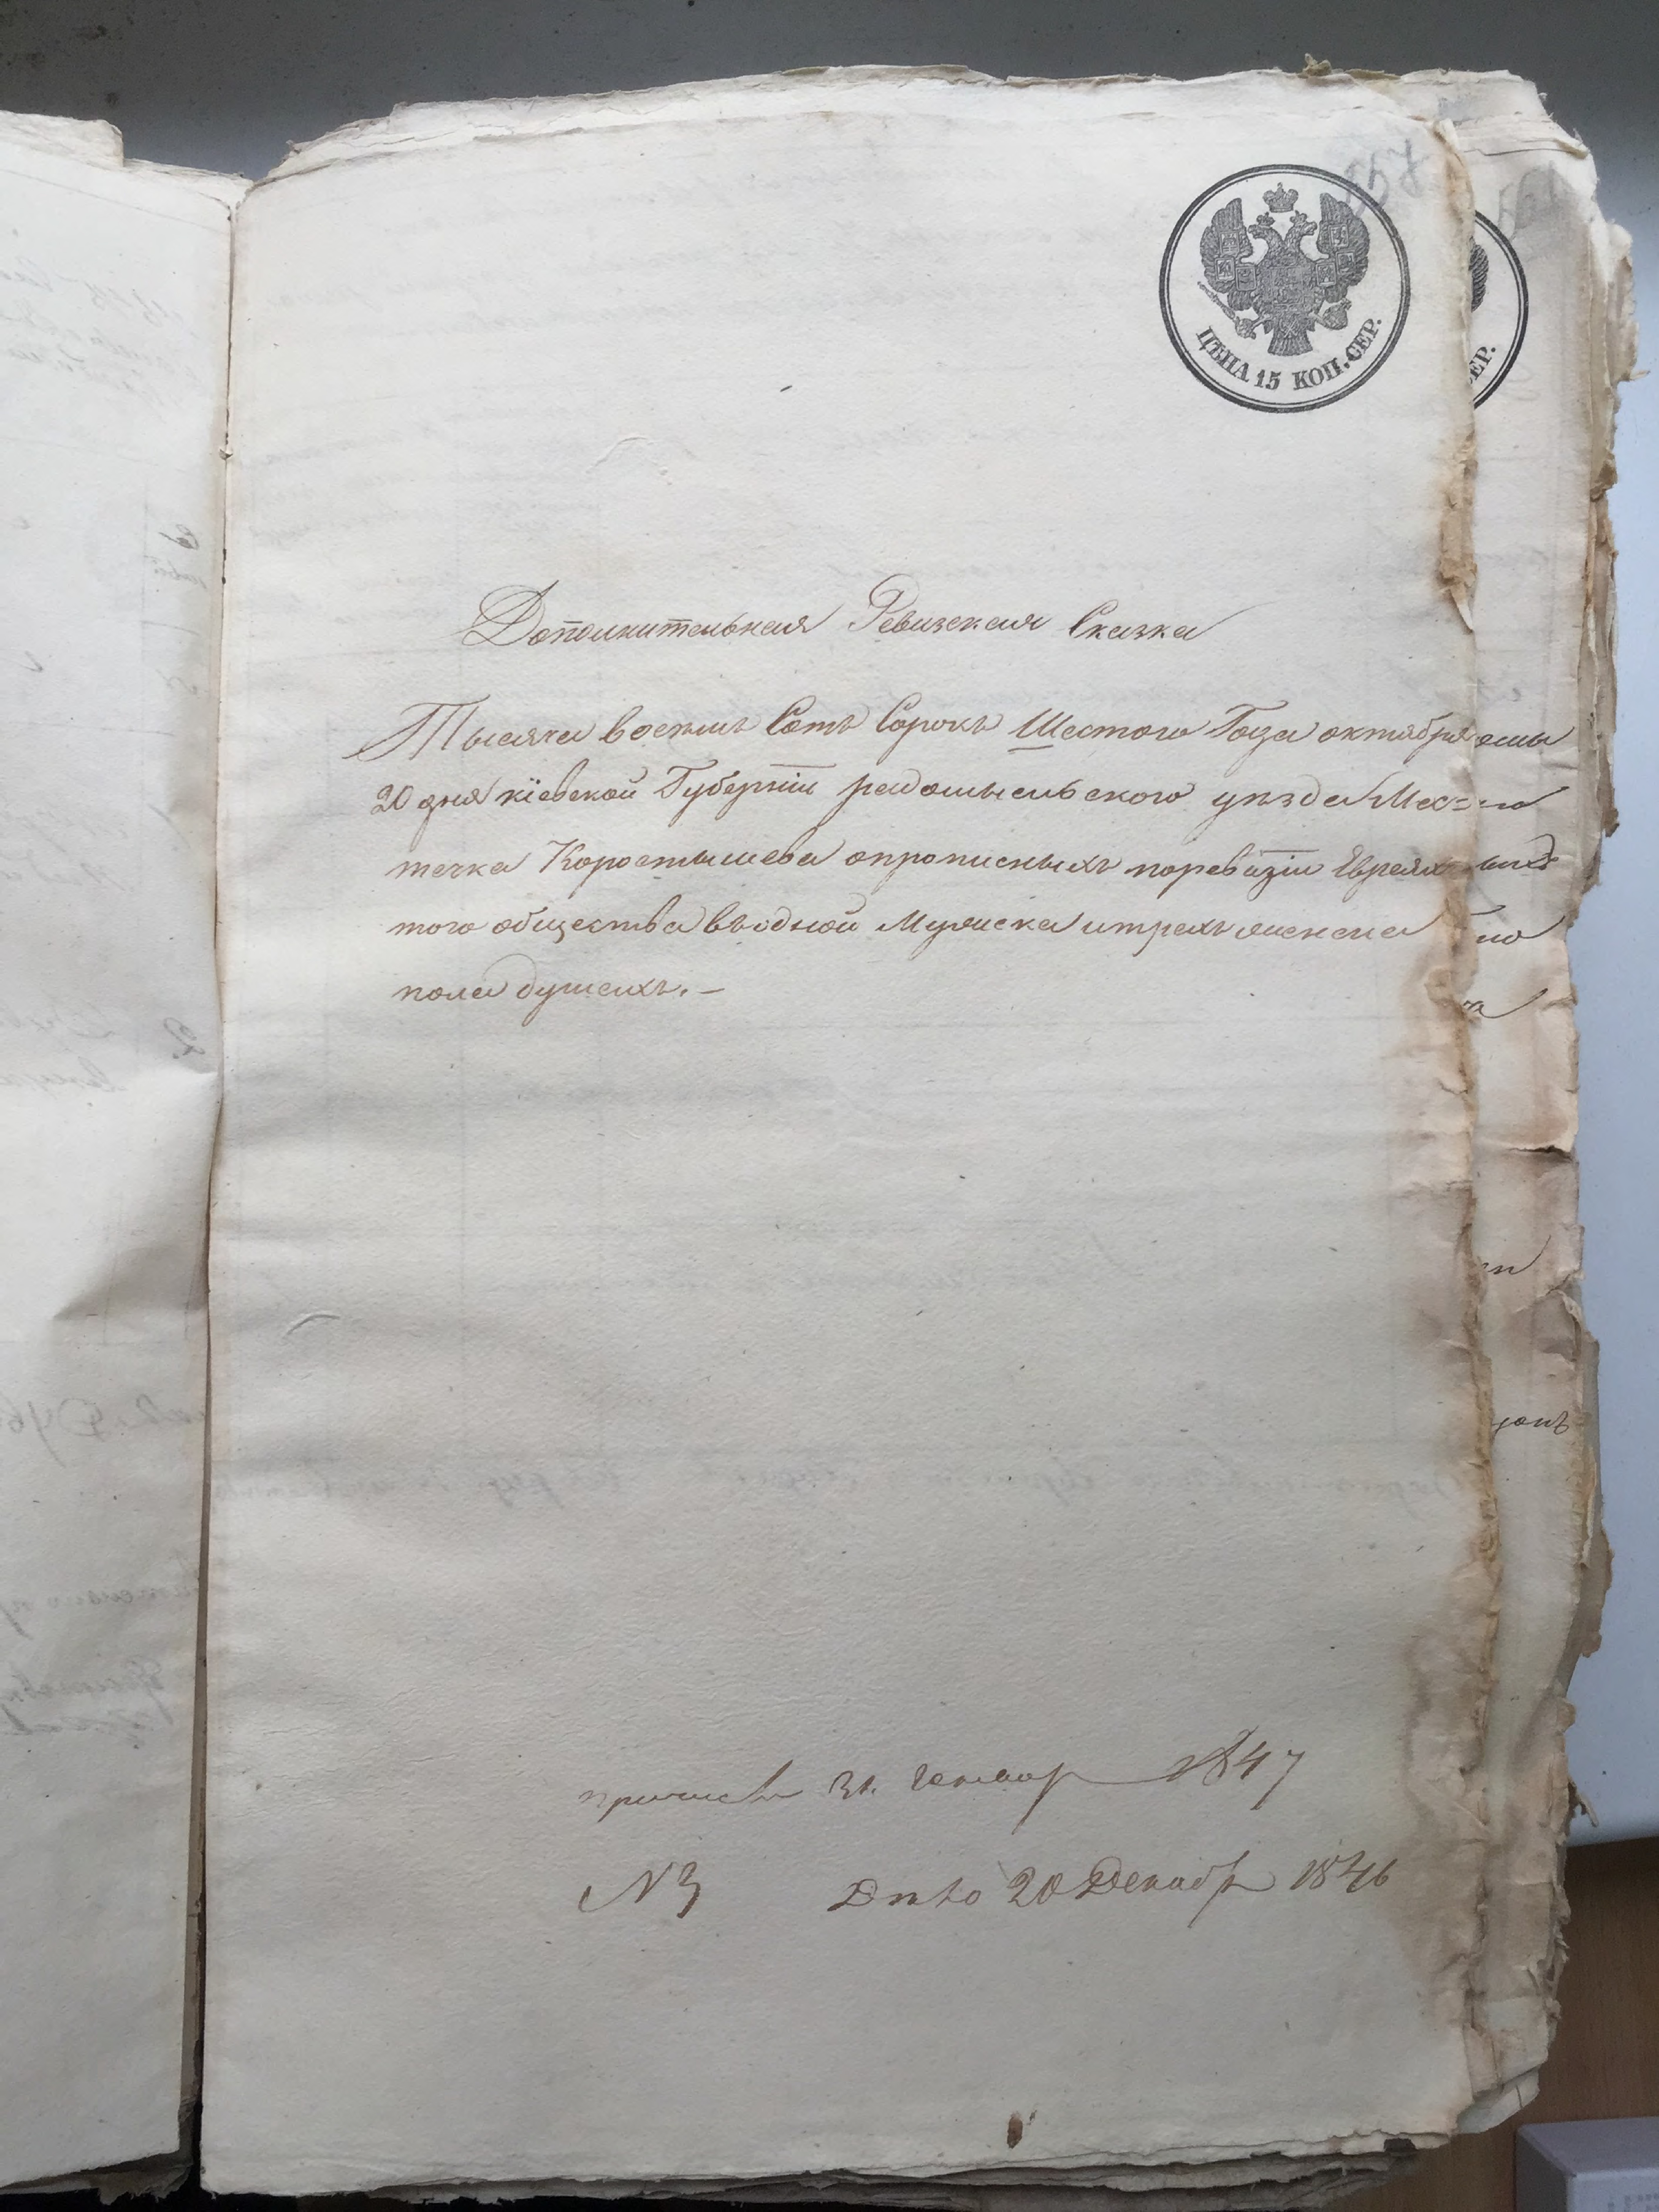 ЦѢНА 15 КОП. СЕР.
Дополнительная Ревизская Сказка
Тысяча восемь Сотъ Сорокъ Шестого Года октября
20 дня кіевской Губерніи радомысльского уѣзда Мес=
течка Коростышева опрописныхъ поревизіи Евреях
того общества въодной Мужеска итрехъ женска
пола душахъ. —
31. Генвар 1847
N 3 20 Декабр 1846